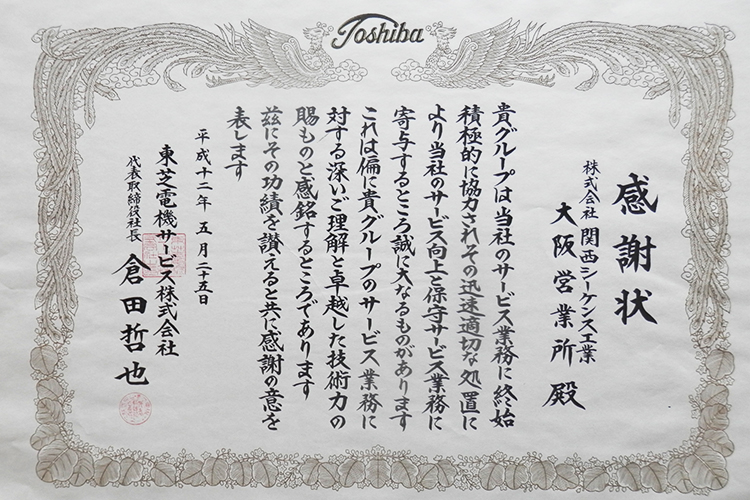 Toshiba
感謝状
株式会社 関西シーケンス工業
大阪営業所 殿
貴グループは当社のサービス業務に終始
積極的に協力されその迅速適切な処置に
より当社のサービス向上と保守サービス業務に
寄与するところ誠に大なるものがあります
これは偏に貴グループのサービス業務に
対する深いご理解と卓越した技術力の
賜ものと感銘するところであります
茲にその功績を讃えると共に感謝の意を
表します
平成十二年 五月二十五日
東芝電機サービス株式会社
代表取締役社長 倉田哲也